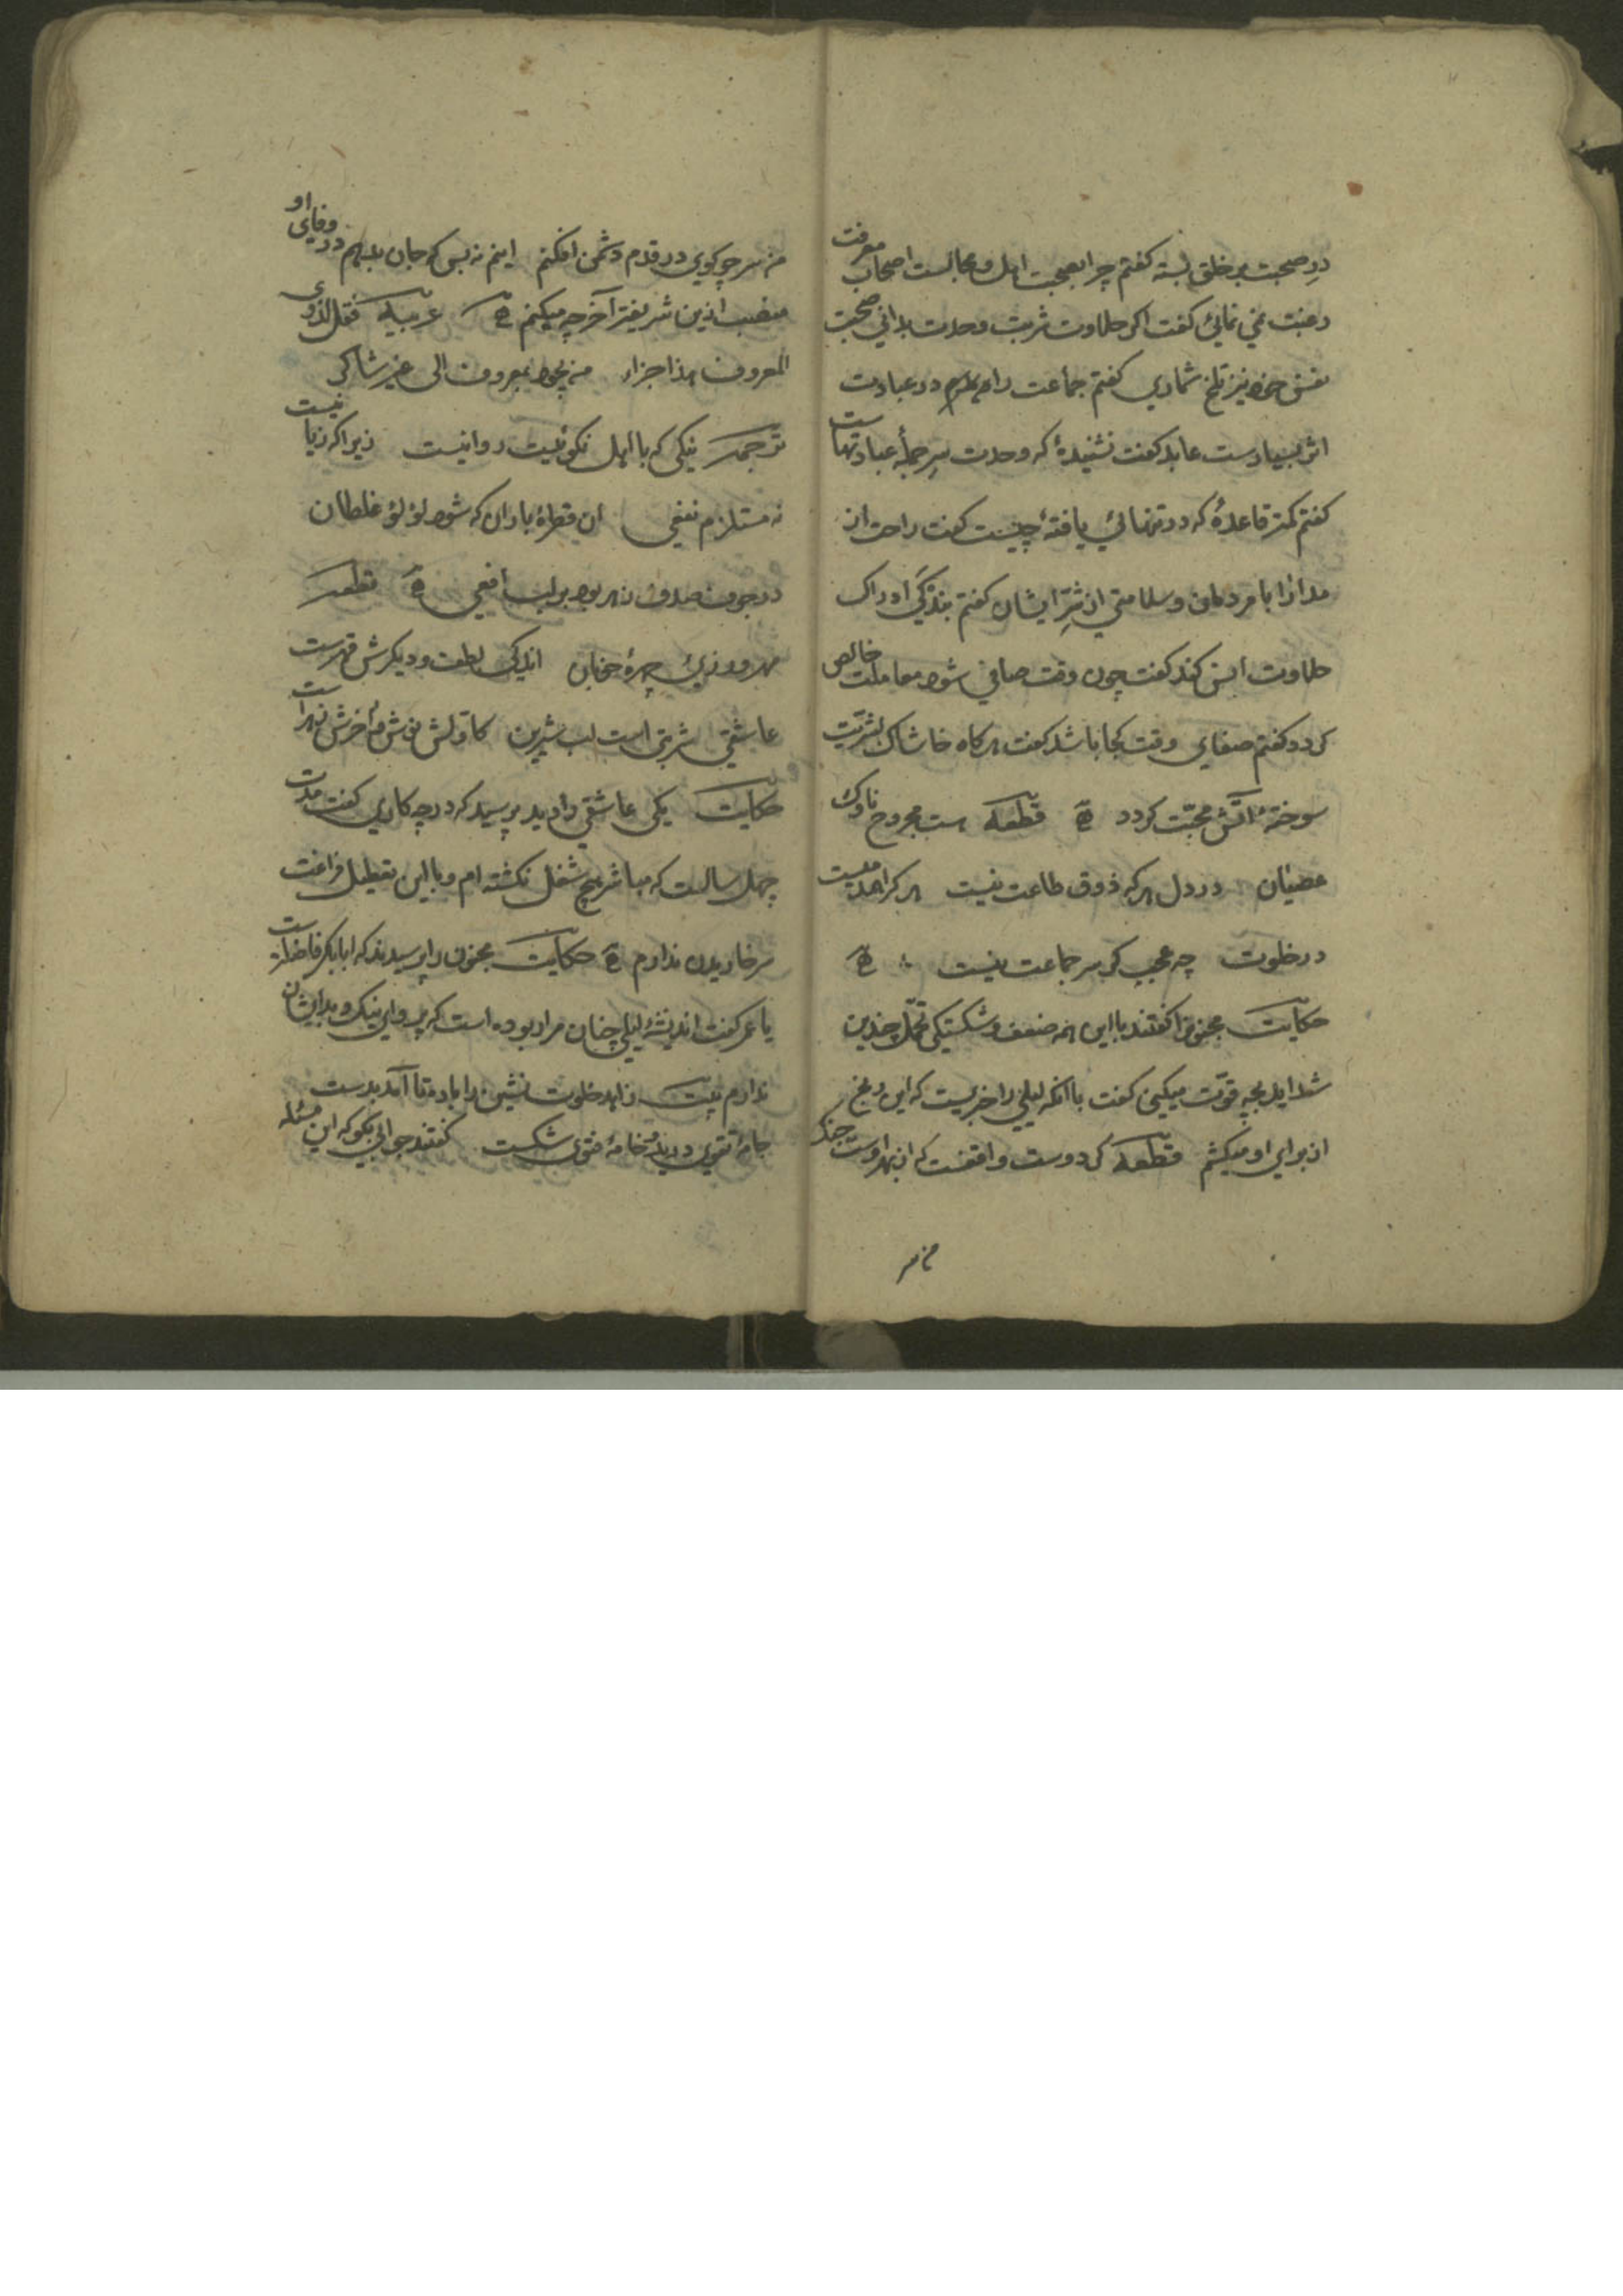 در صحبت بر خلق بسته کفتم چرا بصحبت اهل و مجالست اصحاب معرفت
رغبت نمی نمائی کفت اکر حلاوت شربت وحدت بدانی صحبت
نفس خود نیز تلخ شماری کفتم جماعت را در عبادت
اثر بسیارست عابد کفت نشنیدهٔ که وحدت سر جملهٔ عبادتهاست
کفتم کمتر قاعدهٔ که در تنهائی یافتهٔ چیست کفت راحت از
مدارا با مردمان و سلامتی از شرّ ایشان کفتم بندکی ادراک
حلاوت انس کند کفت چون وقت صافی شود معاملت خالص
کردد کفتم صفای وقت کجا باشد کفت هرکاه خاشاک بشریّت
سوختهٔ آتش محبّت کردد قطعه است مجروح ناوک
عصیان در دل هرکه ذوق طاعت نیست هرکرا
در خلوت چه عجب کر سر جماعت نیست
حکایت مجنونرا کفتند با این همه ضعف و شکستکی تحمّل چندین
شداید بچه قوّت میکنی کفت با آنکه لیلی را خبریست که این رنج
از برای او میکشم قطعه کر دوست واقفست که از بهر اوست جنک
من سر
من سر چو کوی در قدم دشمن افکنم اینم نه بس که جان بدهم در وفای او
منصب ازین شریفتر آخر چه میکنم عربیه فقل لذوی
المعروف هذا جزاء من یجود بمعروف الی غیر شاکر
ترجمه نیکی که با اهل نکوئیست روا نیست زیرا که زیا نیست
نه مستلزم نفعی ان قطرهٔ باران که شود لؤلؤ غلطان
در جوف صدف زهر بود بر لب افعی قطعه
مهرورزی چهرهٔ خوبان اندکی لطف و دیکرش قهرست
عاشقی شربتی است لب شیرین کاوّلش نوش و آخرش زهر است
حکایت یکی عاشقی را دید پرسید که در چه کاری کفت مدت
چهل سالست که مباشر هیچ شغل نکشته ام و با این تعطیل فراغت
سر خاریدن ندارم حکایت مجنون را پرسیدند که ابابکر فاضلترست
یا عمر کفت اندیشهٔ لیلی چنان مرا ربوده است که پروای نیک و بد ایشان
ندارم بیت زاهد خلوت نشین را باده تا آمد بدست
جامهٔ تقوی درید و خامهٔ فتوی شکست کفتند جوابی بکو که این مسئله